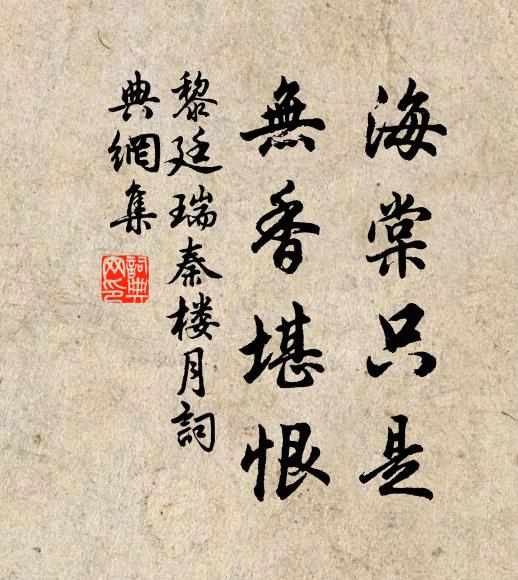 海棠只是
無香堪恨
黎廷瑞秦楼月詞
典網集
詞典
网印